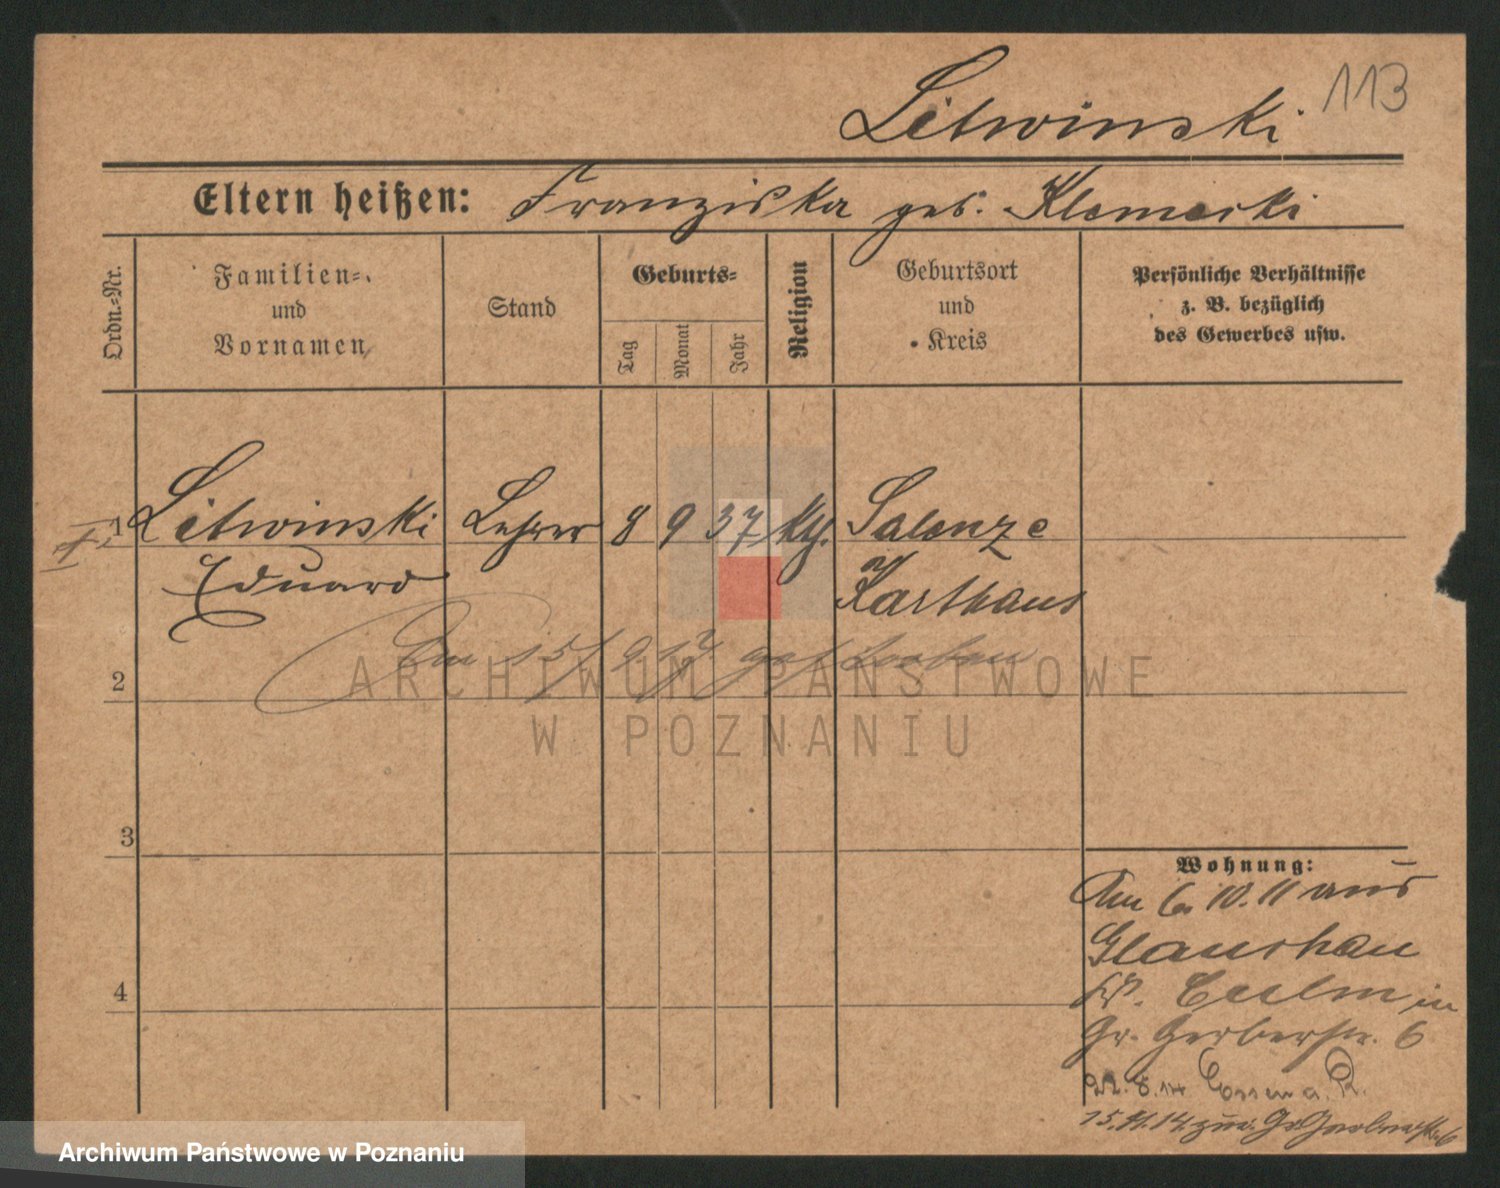 Litwinski 113
Eltern heißen: Franziska geb. Klemeski
Ordn.-Nr.
Familien-
und
Vornamen
Stand
Geburts-
Tag
Monat
Jahr
Religion
Geburtsort
und
Kreis
Persönliche Verhältnisse
z. B. bezüglich
des Gewerbes usw.
1 Litwinski Lehrer 8 9 37 kth. Salenze
Eduard Karthaus
Am 15/9 17 gestorben
2
3
4
Wohnung:
Am 6. 10. 11 aus
Glauchau
Kr. Culm in
Gr. Gerberstr. 6
22. 8. 14 Essen a. R.
15. 11. 14. zur. Gr Gerberstr. 6
ARCHIWUM PAŃSTWOWE
W POZNANIU
Archiwum Państwowe w Poznaniu